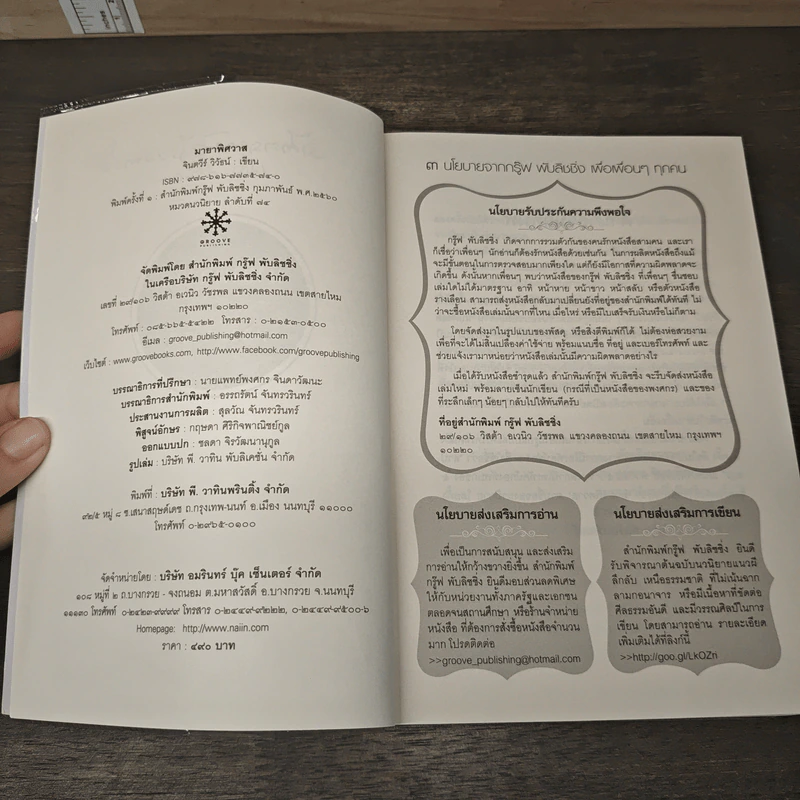 มายาพิศวาส
จินตวีร์ วิวัธน์ : เขียน
ISBN : ๙๗๘-๖๑๖-๗๗๓๕-๗๔-๐
พิมพ์ครั้งที่ ๑ : สำนักพิมพ์กรู๊ฟ พับลิชชิ่ง กุมภาพันธ์ พ.ศ.๒๕๖๐
หมวดนวนิยาย ลำดับที่ ๗๔
GROOVE
PUBLISHING
จัดพิมพ์โดย สำนักพิมพ์ กรู๊ฟ พับลิชชิ่ง
ในเครือบริษัท กรู๊ฟ พับลิชชิ่ง จำกัด
เลขที่ ๒๙/๑๐๖ วิสต้า อเวนิว วัชรพล แขวงคลองถนน เขตสายไหม
กรุงเทพฯ ๑๐๒๒๐
โทรศัพท์ : ๐๘๕-๖๖๕-๕๔๒๒ โทรสาร : ๐-๒๑๕๓-๐๕๐๐
อีเมล : groove_publishing@hotmail.com
เว็บไซต์ : www.groovebooks.com, http://www.facebook.com/groovepublishing
บรรณาธิการที่ปรึกษา : นายแพทย์พงศกร จินดาวัฒนะ
บรรณาธิการสำนักพิมพ์ : อรรถรัตน์ จันทรวรินทร์
ประสานงานการผลิต : สุลวัณ จันทรวรินทร์
พิสูจน์อักษร : กฤษดา ศิริกิจพาณิชย์กูล
ออกแบบปก : ชลดา จิรวัฒนานุกูล
รูปเล่ม : บริษัท พี. วาทิน พับลิเคชั่น จำกัด
พิมพ์ที่ : บริษัท พี. วาทินพรินติ้ง จำกัด
๙๒/๕ หมู่ ๘ ซ.เสนาสฤษด์เดช ถ.กรุงเทพ-นนท์ อ.เมือง นนทบุรี ๑๑๐๐๐
โทรศัพท์ ๐-๒๙๖๕-๐๑๐๐
จัดจำหน่ายโดย : บริษัท อมรินทร์ บุ๊ค เซ็นเตอร์ จำกัด
๑๐๘ หมู่ที่ ๒ ถ.บางกรวย - จงถนอม ต.มหาสวัสดิ์ อ.บางกรวย จ.นนทบุรี
๑๑๑๓๐ โทรศัพท์ ๐-๒๔๒๓-๙๙๙๙ โทรสาร ๐-๒๔๔๙-๙๒๒๒, ๐-๒๔๔๙-๙๕๐๐-๖
Homepage: http://www.naiin.com
ราคา : ๔๙๐ บาท
๓ นโยบายจากกรู๊ฟ พับลิชชิ่ง เพื่อเพื่อนๆ ทุกคน
นโยบายรับประกันความพึงพอใจ
กรู๊ฟ พับลิชชิ่ง เกิดจากการรวมตัวกันของคนรักหนังสือสามคน และเรา
ก็เชื่อว่าเพื่อนๆ นักอ่านก็ต้องรักหนังสือด้วยเช่นกัน ในการผลิตหนังสือถึงแม้
จะมีขั้นตอนในการตรวจสอบมากเพียงใด แต่ก็ยังมีโอกาสที่ความผิดพลาดจะ
เกิดขึ้น ดังนั้นหากเพื่อนๆ พบว่าหนังสือของกรู๊ฟ พับลิชชิ่ง ที่เพื่อนๆ ชื่นชอบ
เล่มใดไม่ได้มาตรฐาน อาทิ หน้าหาย หน้าขาว หน้าสลับ หรือตัวหนังสือ
รางเลือน สามารถส่งหนังสือกลับมาเปลี่ยนยังที่อยู่ของสำนักพิมพ์ได้ทันที ไม่
ว่าจะซื้อหนังสือเล่มนั้นจากที่ไหน เมื่อไหร่ หรือมีใบเสร็จรับเงินหรือไม่ก็ตาม
โดยจัดส่งมาในรูปแบบของพัสดุ หรือสิ่งตีพิมพ์ก็ได้ ไม่ต้องห่อสวยงาม
เพื่อที่จะได้ไม่สิ้นเปลืองค่าใช้จ่าย พร้อมแนบชื่อ ที่อยู่ และเบอร์โทรศัพท์ และ
ช่วยแจ้งเรามาหน่อยว่าหนังสือเล่มนั้นมีความผิดพลาดอย่างไร
เมื่อได้รับหนังสือชำรุดแล้ว สำนักพิมพ์กรู๊ฟ พับลิชชิ่ง จะรีบจัดส่งหนังสือ
เล่มใหม่ พร้อมลายเซ็นนักเขียน (กรณีที่เป็นหนังสือของพงศกร) และของ
ที่ระลึกเล็กๆ น้อยๆ กลับไปให้ทันทีครับ
ที่อยู่สำนักพิมพ์ กรู๊ฟ พับลิชชิ่ง
๒๙/๑๐๖ วิสต้า อเวนิว วัชรพล แขวงคลองถนน เขตสายไหม กรุงเทพฯ
๑๐๒๒๐
นโยบายส่งเสริมการอ่าน
เพื่อเป็นการสนับสนุน และส่งเสริม
การอ่านให้กว้างขวางยิ่งขึ้น สำนักพิมพ์
กรู๊ฟ พับลิชชิ่ง ยินดีมอบส่วนลดพิเศษ
ให้กับหน่วยงานทั้งภาครัฐและเอกชน
ตลอดจนสถานศึกษา หรือร้านจำหน่าย
หนังสือ ที่ต้องการสั่งซื้อหนังสือจำนวน
มาก โปรดติดต่อ
>>groove_publishing@hotmail.com
นโยบายส่งเสริมการเขียน
สำนักพิมพ์กรู๊ฟ พับลิชชิ่ง ยินดี
รับพิจารณาต้นฉบับนวนิยายแนวผี
ลึกลับ เหนือธรรมชาติ ที่ไม่เน้นฉาก
ลามกอนาจาร หรือมีเนื้อหาที่ขัดต่อ
ศีลธรรมอันดี และมีวรรณศิลป์ในการ
เขียน โดยสามารถอ่าน รายละเอียด
เพิ่มเติมได้ที่ลิงก์นี้
>>http://goo.gl/LkOZri